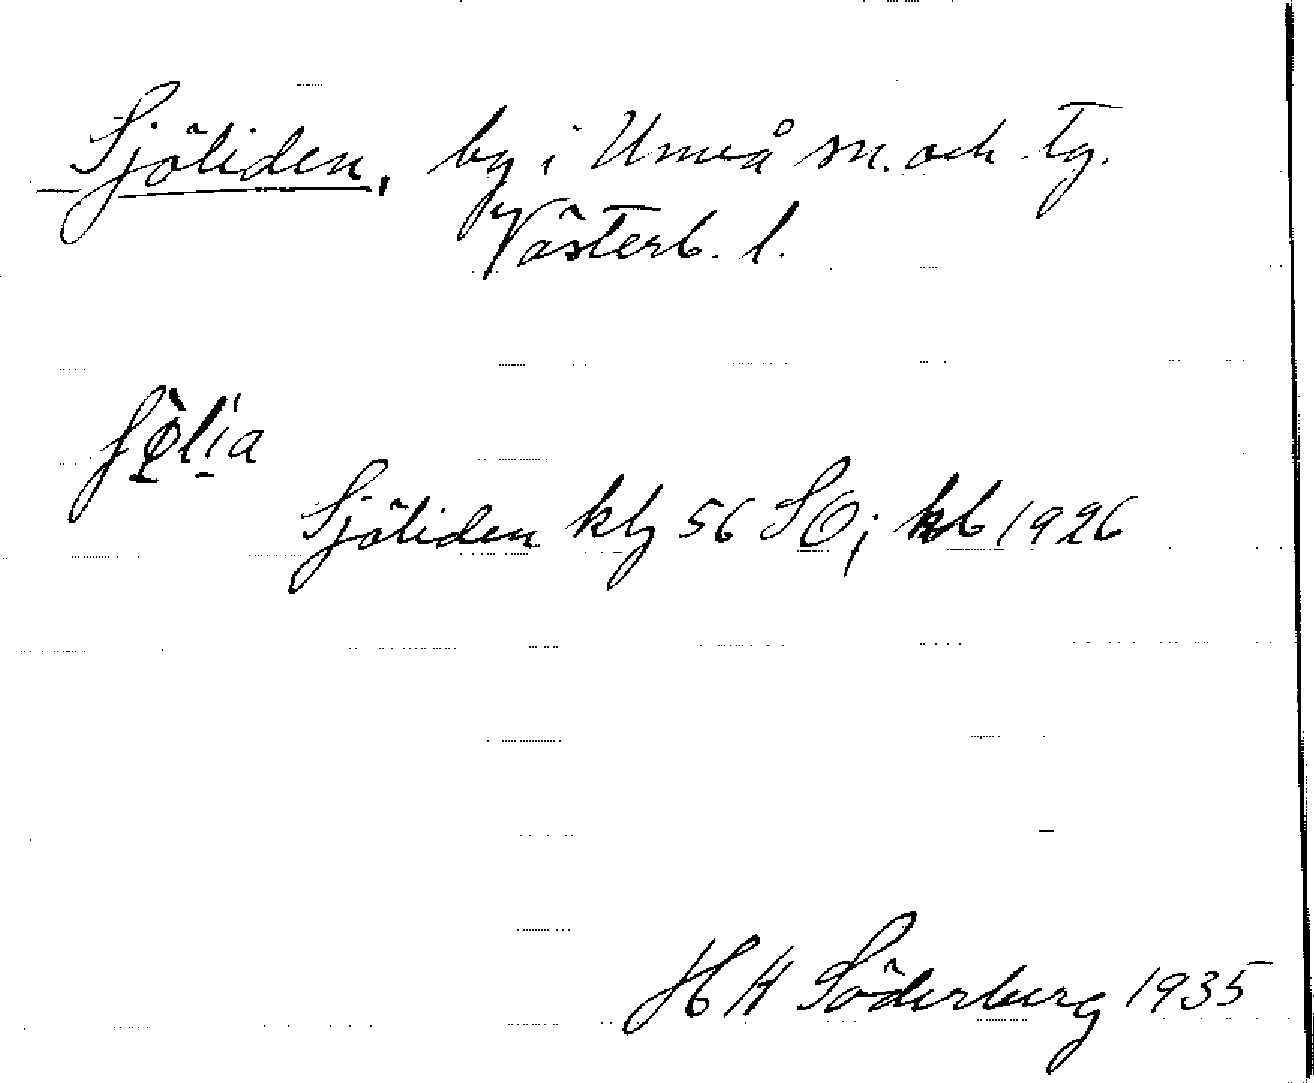 Sjöliden, by i Umeå sn. och tg.
Västerb. l.
Sjöliden kbg 56 SO; kb 1926
H H Söderberg 1935